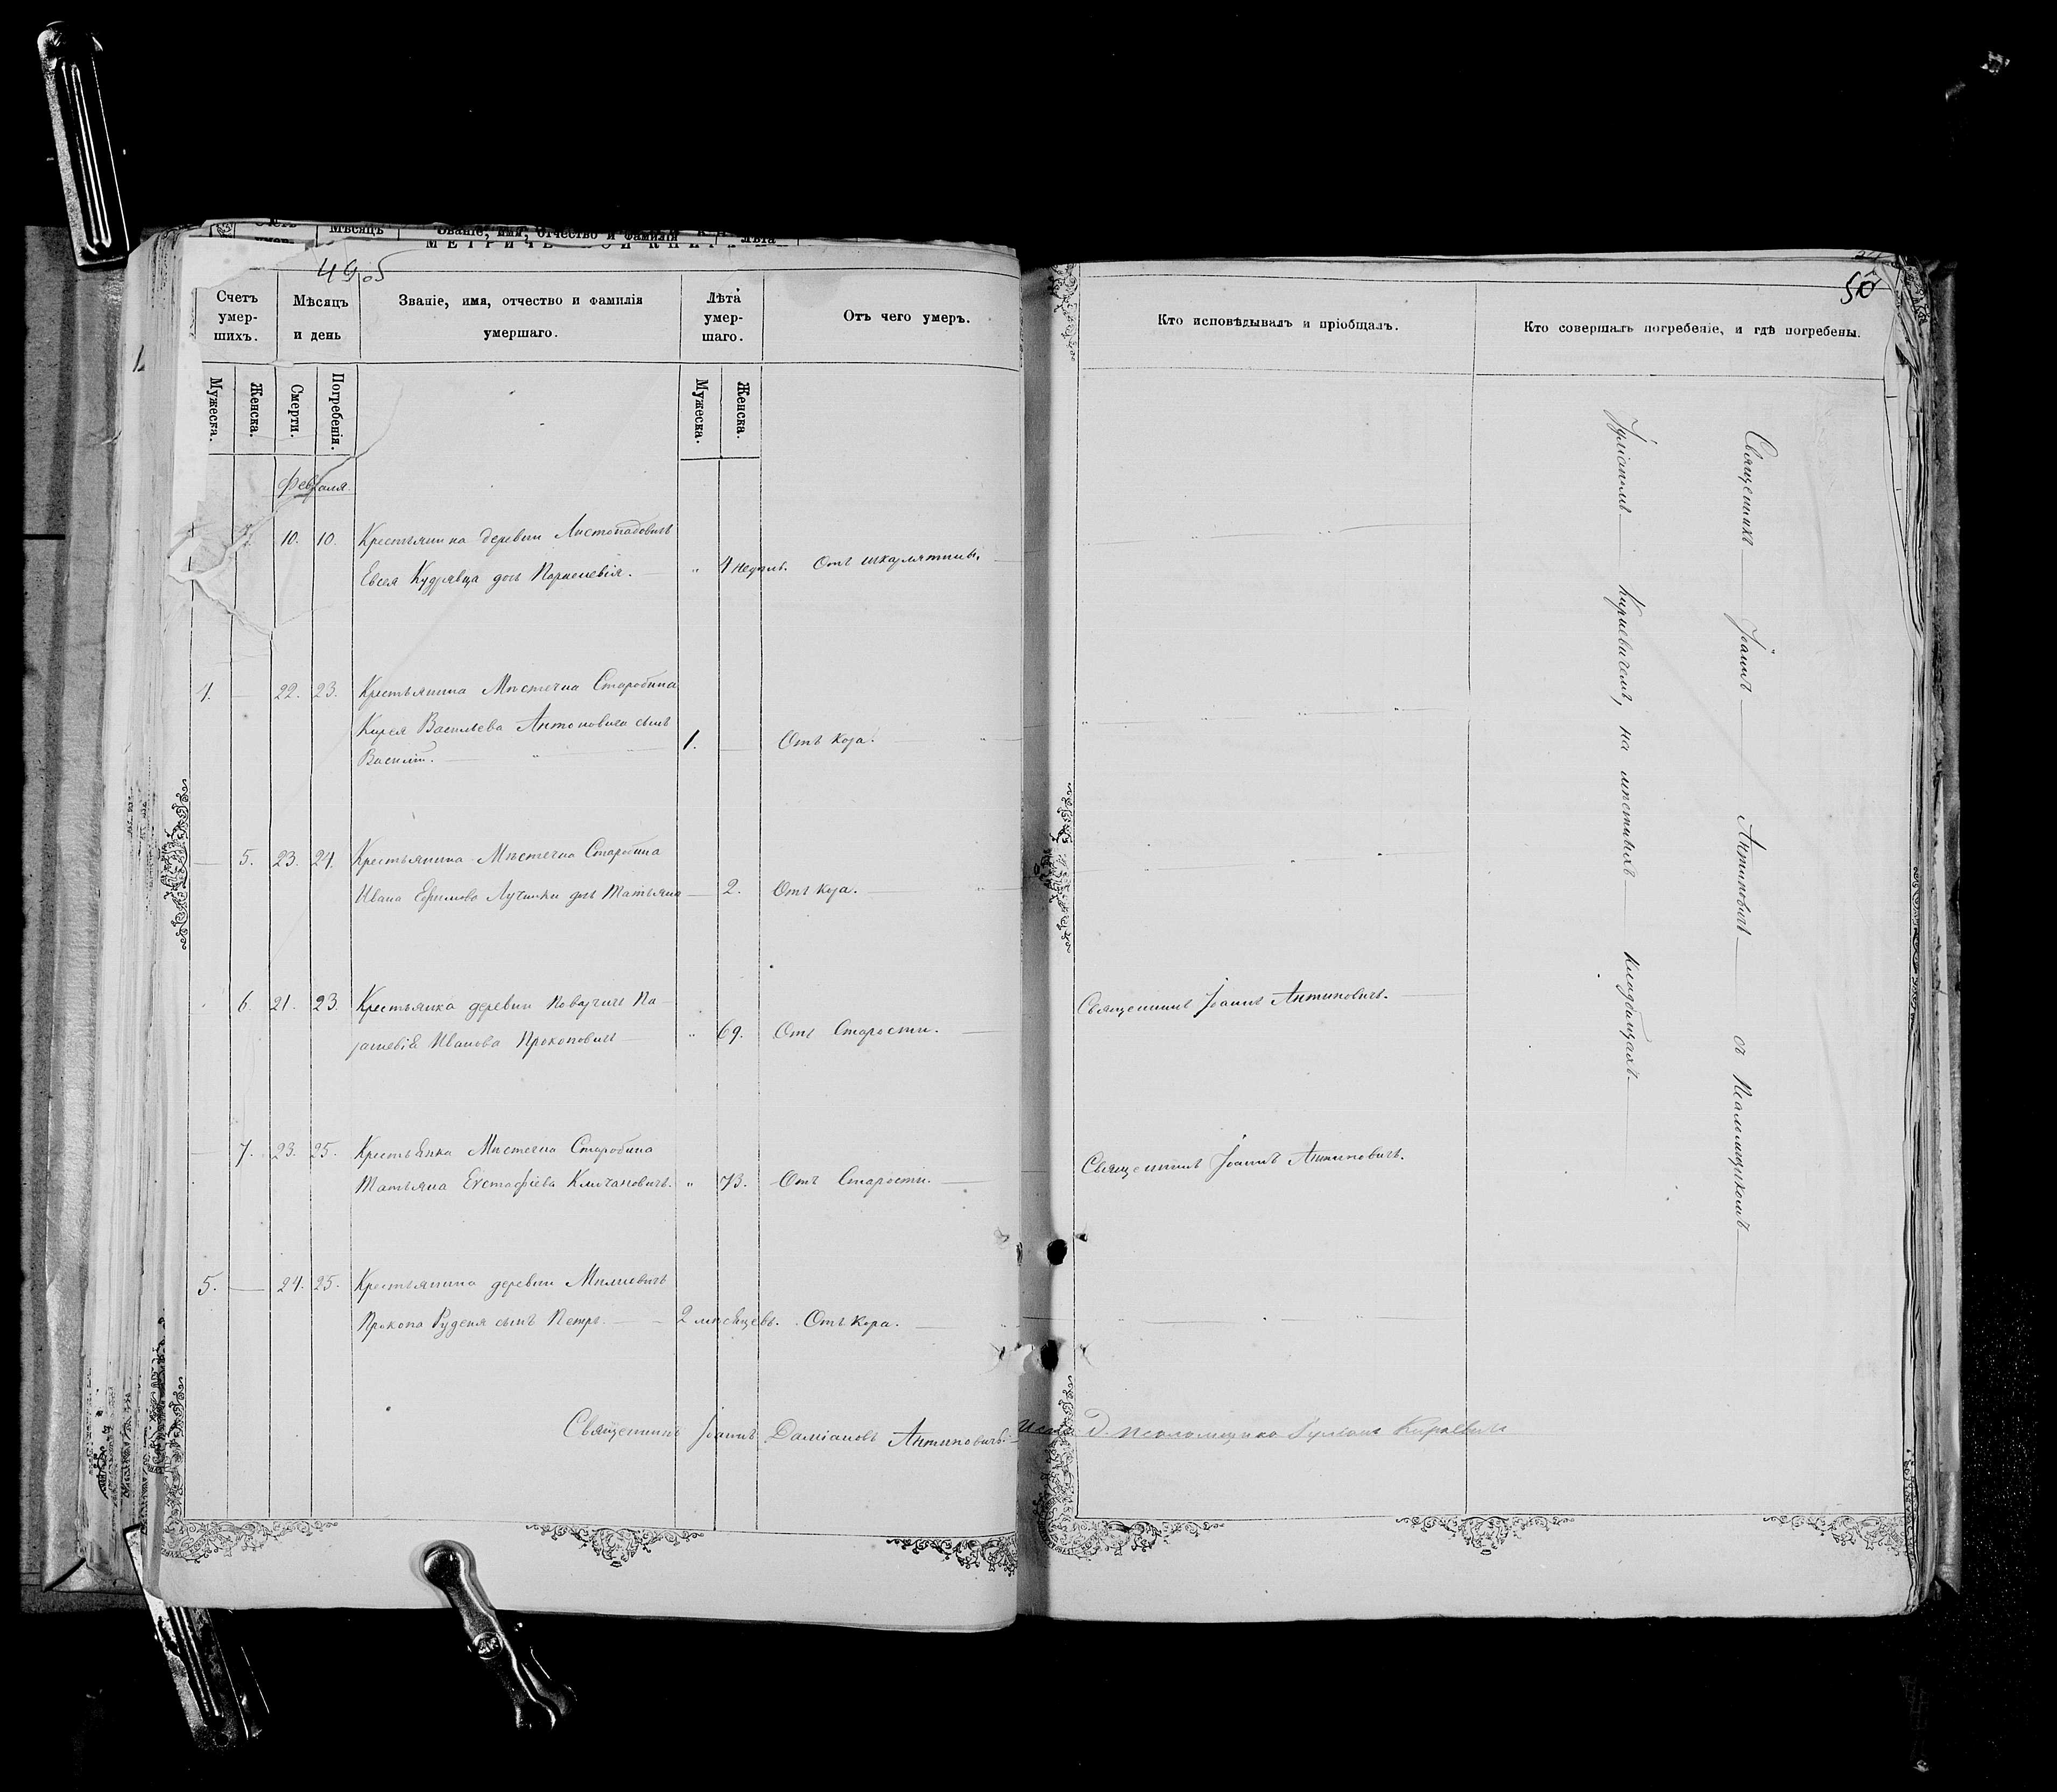 Мѣсяцъ
Званіе, имя, отчество и фамилія
Лѣта
49об
50
Счетъ умер-шихъ.
Мѣсяцъ и день
Званіе, имя, отчество и фамилія
умершаго.
Лѣта умер-шаго.
Отъ чего умеръ.
Кто исповѣдывалъ и пріобщалъ.
Кто совершалъ погребеніе, и гдѣ погребены.
Мужеска.
Женска.
Смерти.
Погребенія.
Мужеска.
Женска.
Февраля
10. 10. Крестьянина деревни Листопадовичъ
Евсея Кудрявца дочь " 4 недѣль. Отъ шкарлятины.
4. — 22. 23. Крестьянина Мѣстечка Старобина
Кирея Васильева Антоновича сынъ
Василій. 1. — Отъ Кора.
— 5. 23. 24. Крестьянина Мѣстечка Старобина
Ивана Ефимова Лучинки дочь Татьяна — 2. Отъ Кора.
6. 21. 23. Крестьянка деревни
Иванова Прокоповичъ " 69. Отъ Старости.
Священникъ Іоаннъ Антиповичъ.
7. 23. 25. Крестьянка Мѣстечка Старобина
Татьяна Евстафіева Климановичъ. " 73. Отъ Старости.
Священникъ Іоаннъ Антиповичъ.
5. — 24. 25. Крестьянина деревни Милневичъ
Прокопа Руденя сынъ Петръ. 2 мѣсяцевъ. Отъ Кора.
Священникъ Іоаннъ Даміановъ Антиповичъ.
Д. Псаломщика
Священникъ Іоаннъ Антиповичъ съ Псаломщикомъ
Іуліаномъ Кирневичемъ, на мѣстныхъ кладбищахъ.